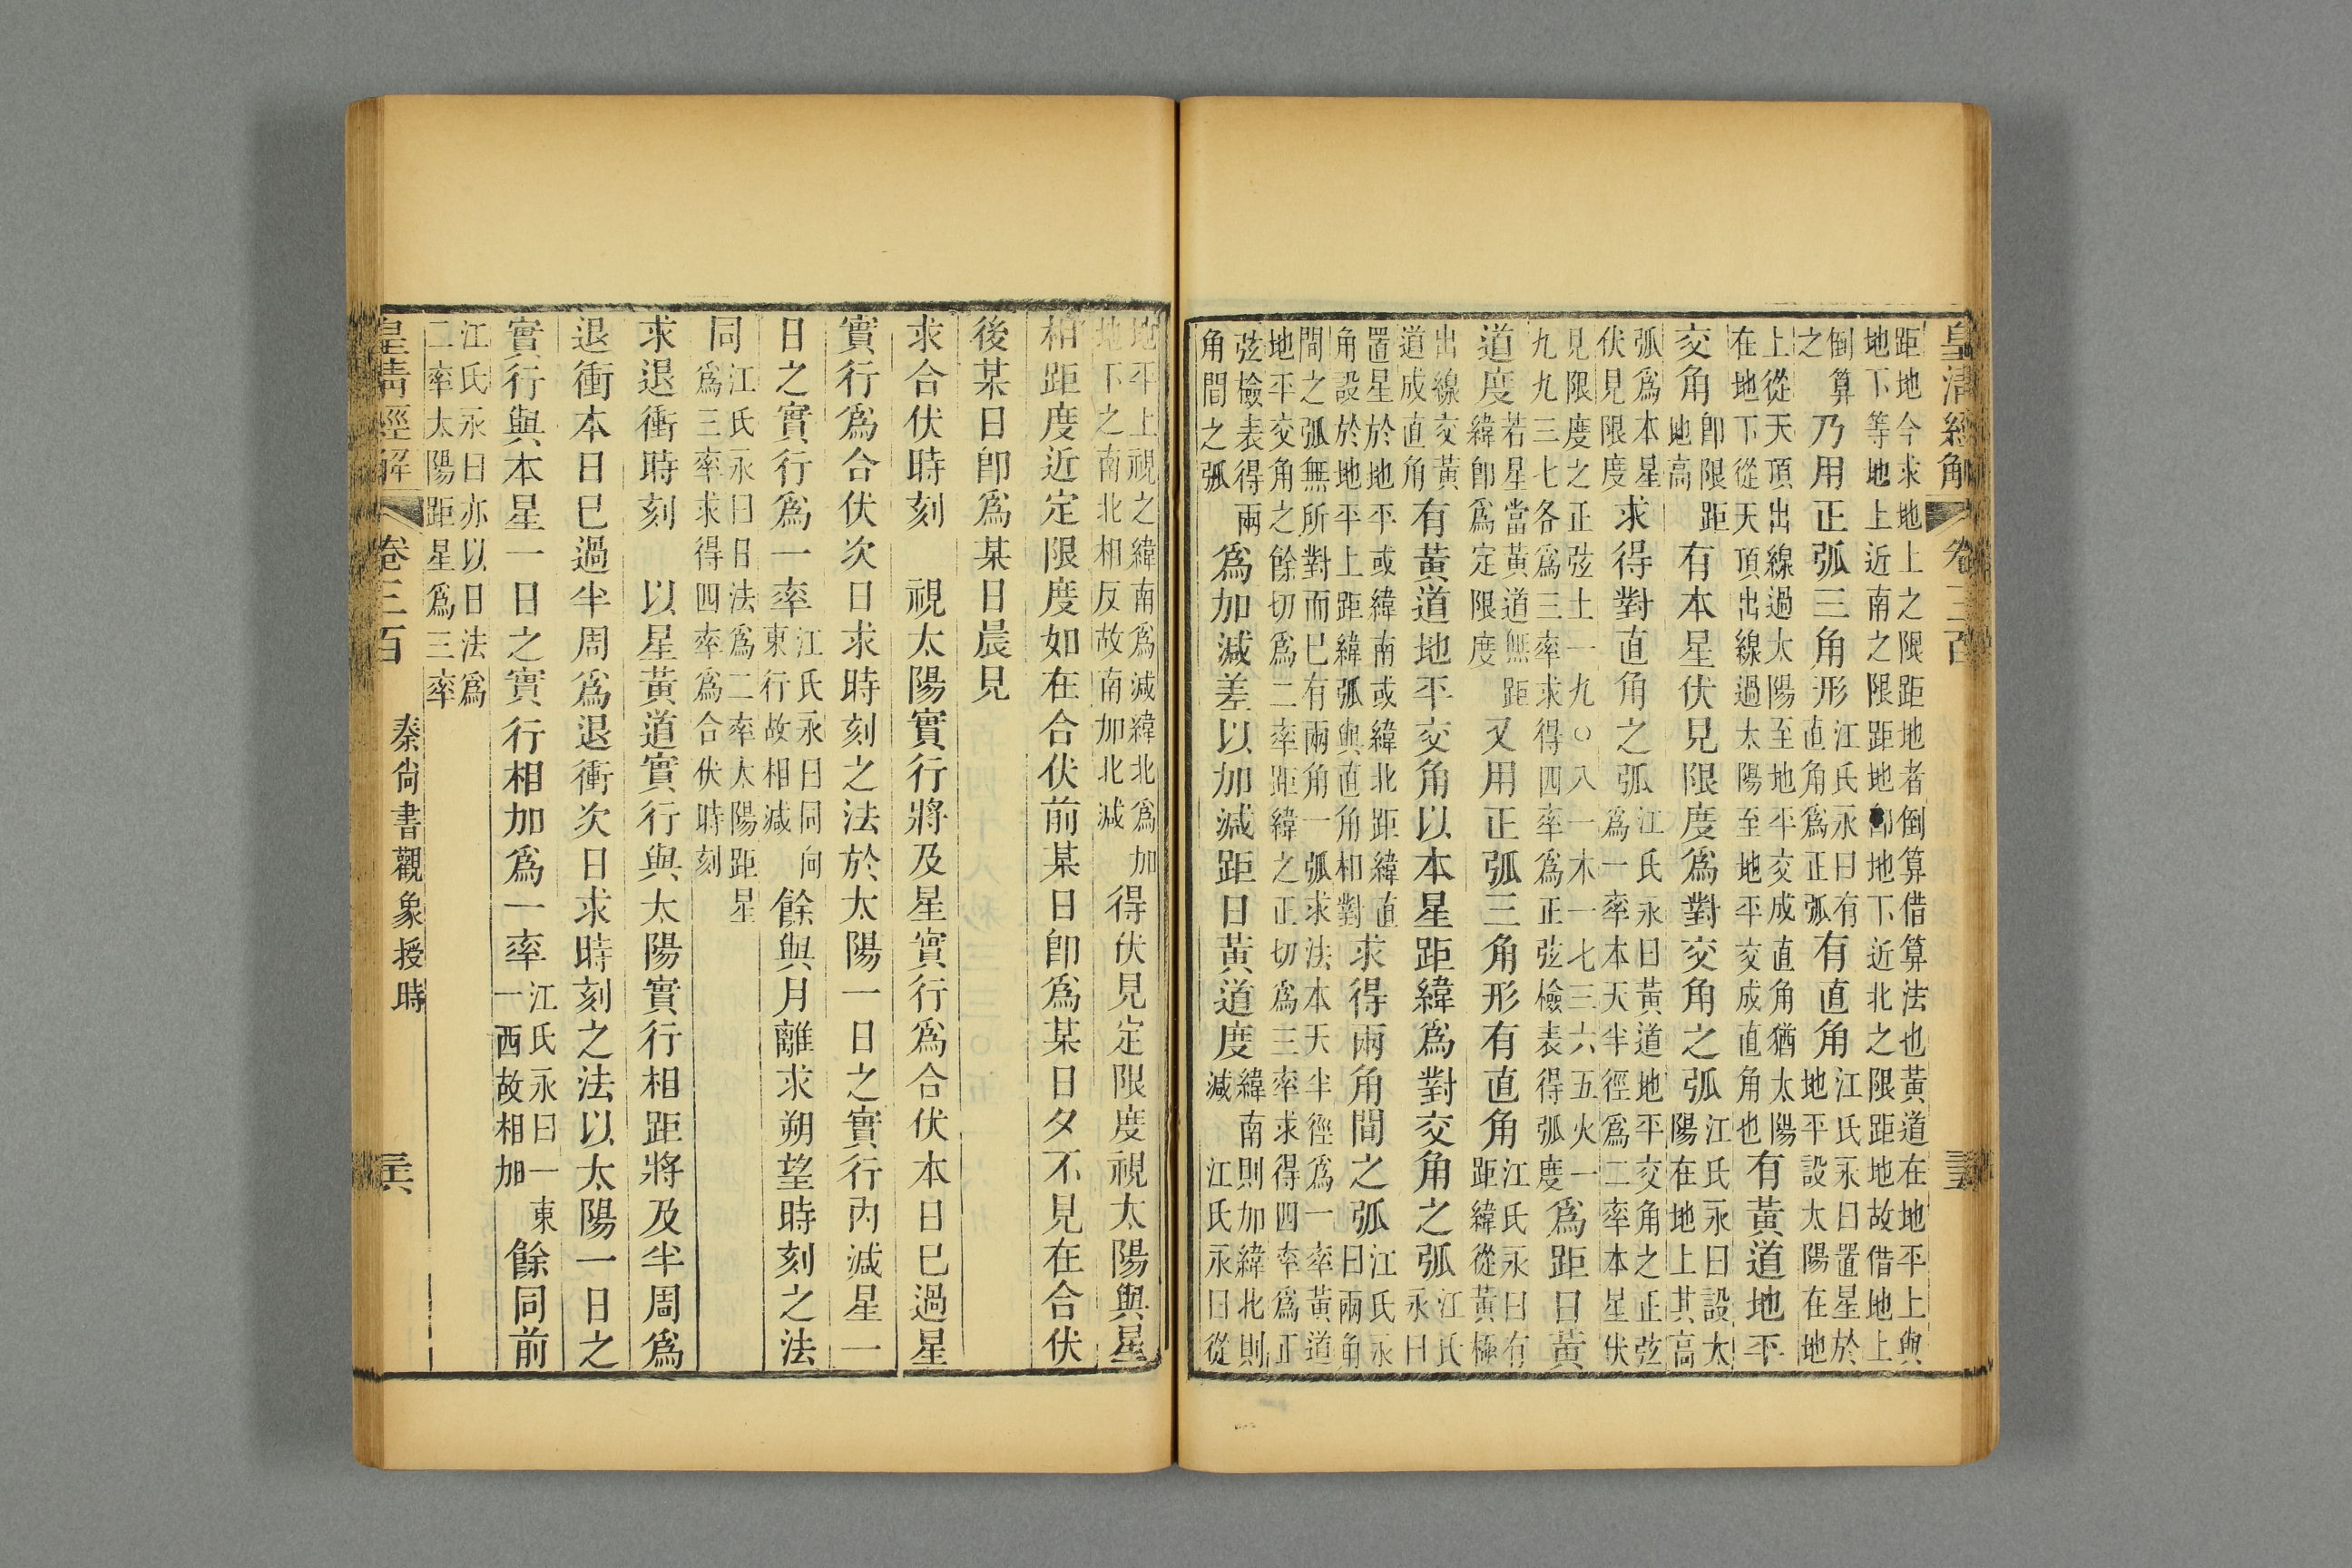 皇清經解 卷三百
距地今求地上之限距地者倒算借算法也黃道在地平上與
地下等地上近南之限距地卽地下近北之限距地故借地上
倒算
之
乃用正弧三角形
江氏永曰有
直角爲正弧
有直角
江氏永曰置星於
地平設太陽在地
上從天頂出線過太陽至地平交成直角猶太陽
在地下從天頂出線過太陽至地平交成直角也
有黃道地平
交角
卽限距
地高
有本星伏見限度爲對交角之弧
江氏永曰設太
陽在地上其高
弧爲本星
伏見限度
求得對直角之弧
江氏永曰黃道地平交角之正弦
爲一率本天半徑爲二率本星伏
見限度之正弦土一九〇八一木一七三六五火一
九九三七各爲三率求得四率爲正弦檢表得弧度
爲距日黃
道度
若星當黃道無距
緯卽爲定限度
又用正弧三角形有直角
江氏永曰有
距緯從黃極
出線交黃
道成直角
有黃道地平交角以本星距緯爲對交角之弧
江氏
永曰
置星於地平或緯南或緯北距緯直
角設於地平上距緯弧與直角相對
求得兩角間之弧
江氏永
曰兩角
間之弧無所對而巳有兩角一弧求法本天半徑爲一率黃道
地平交角之餘切爲二率距緯之正切爲三率求得四率爲正
弦檢表得兩
角間之弧
爲加減差以加減距日黃道度
緯南則加緯北則
減 江氏永曰從
地平上視之緯南爲減緯北爲加
地下之南北相反故南加北減
得伏見定限度視太陽與星
相距度近定限度如在合伏前某日卽爲某日夕不見在合伏
後某日卽爲某日晨見
求合伏時刻 視太陽實行將及星實行爲合伏本日巳過星
實行爲合伏次日求時刻之法於太陽一日之實行內減星一
日之實行爲一率
江氏永曰同向
東行故相減
餘與月離求朔望時刻之法
同
江氏永曰日法爲二率太陽距星
爲三率求得四率爲合伏時刻
求退衝時刻 以星黃道實行與太陽實行相距將及半周爲
退衝本日巳過半周爲退衝次日求時刻之法以太陽一日之
實行與本星一日之實行相加爲一率
江氏永曰一東
一西故相加
餘同前
江氏永曰亦以日法爲
二率太陽距星爲三率
皇清經解 卷三百 秦尙書觀象授時